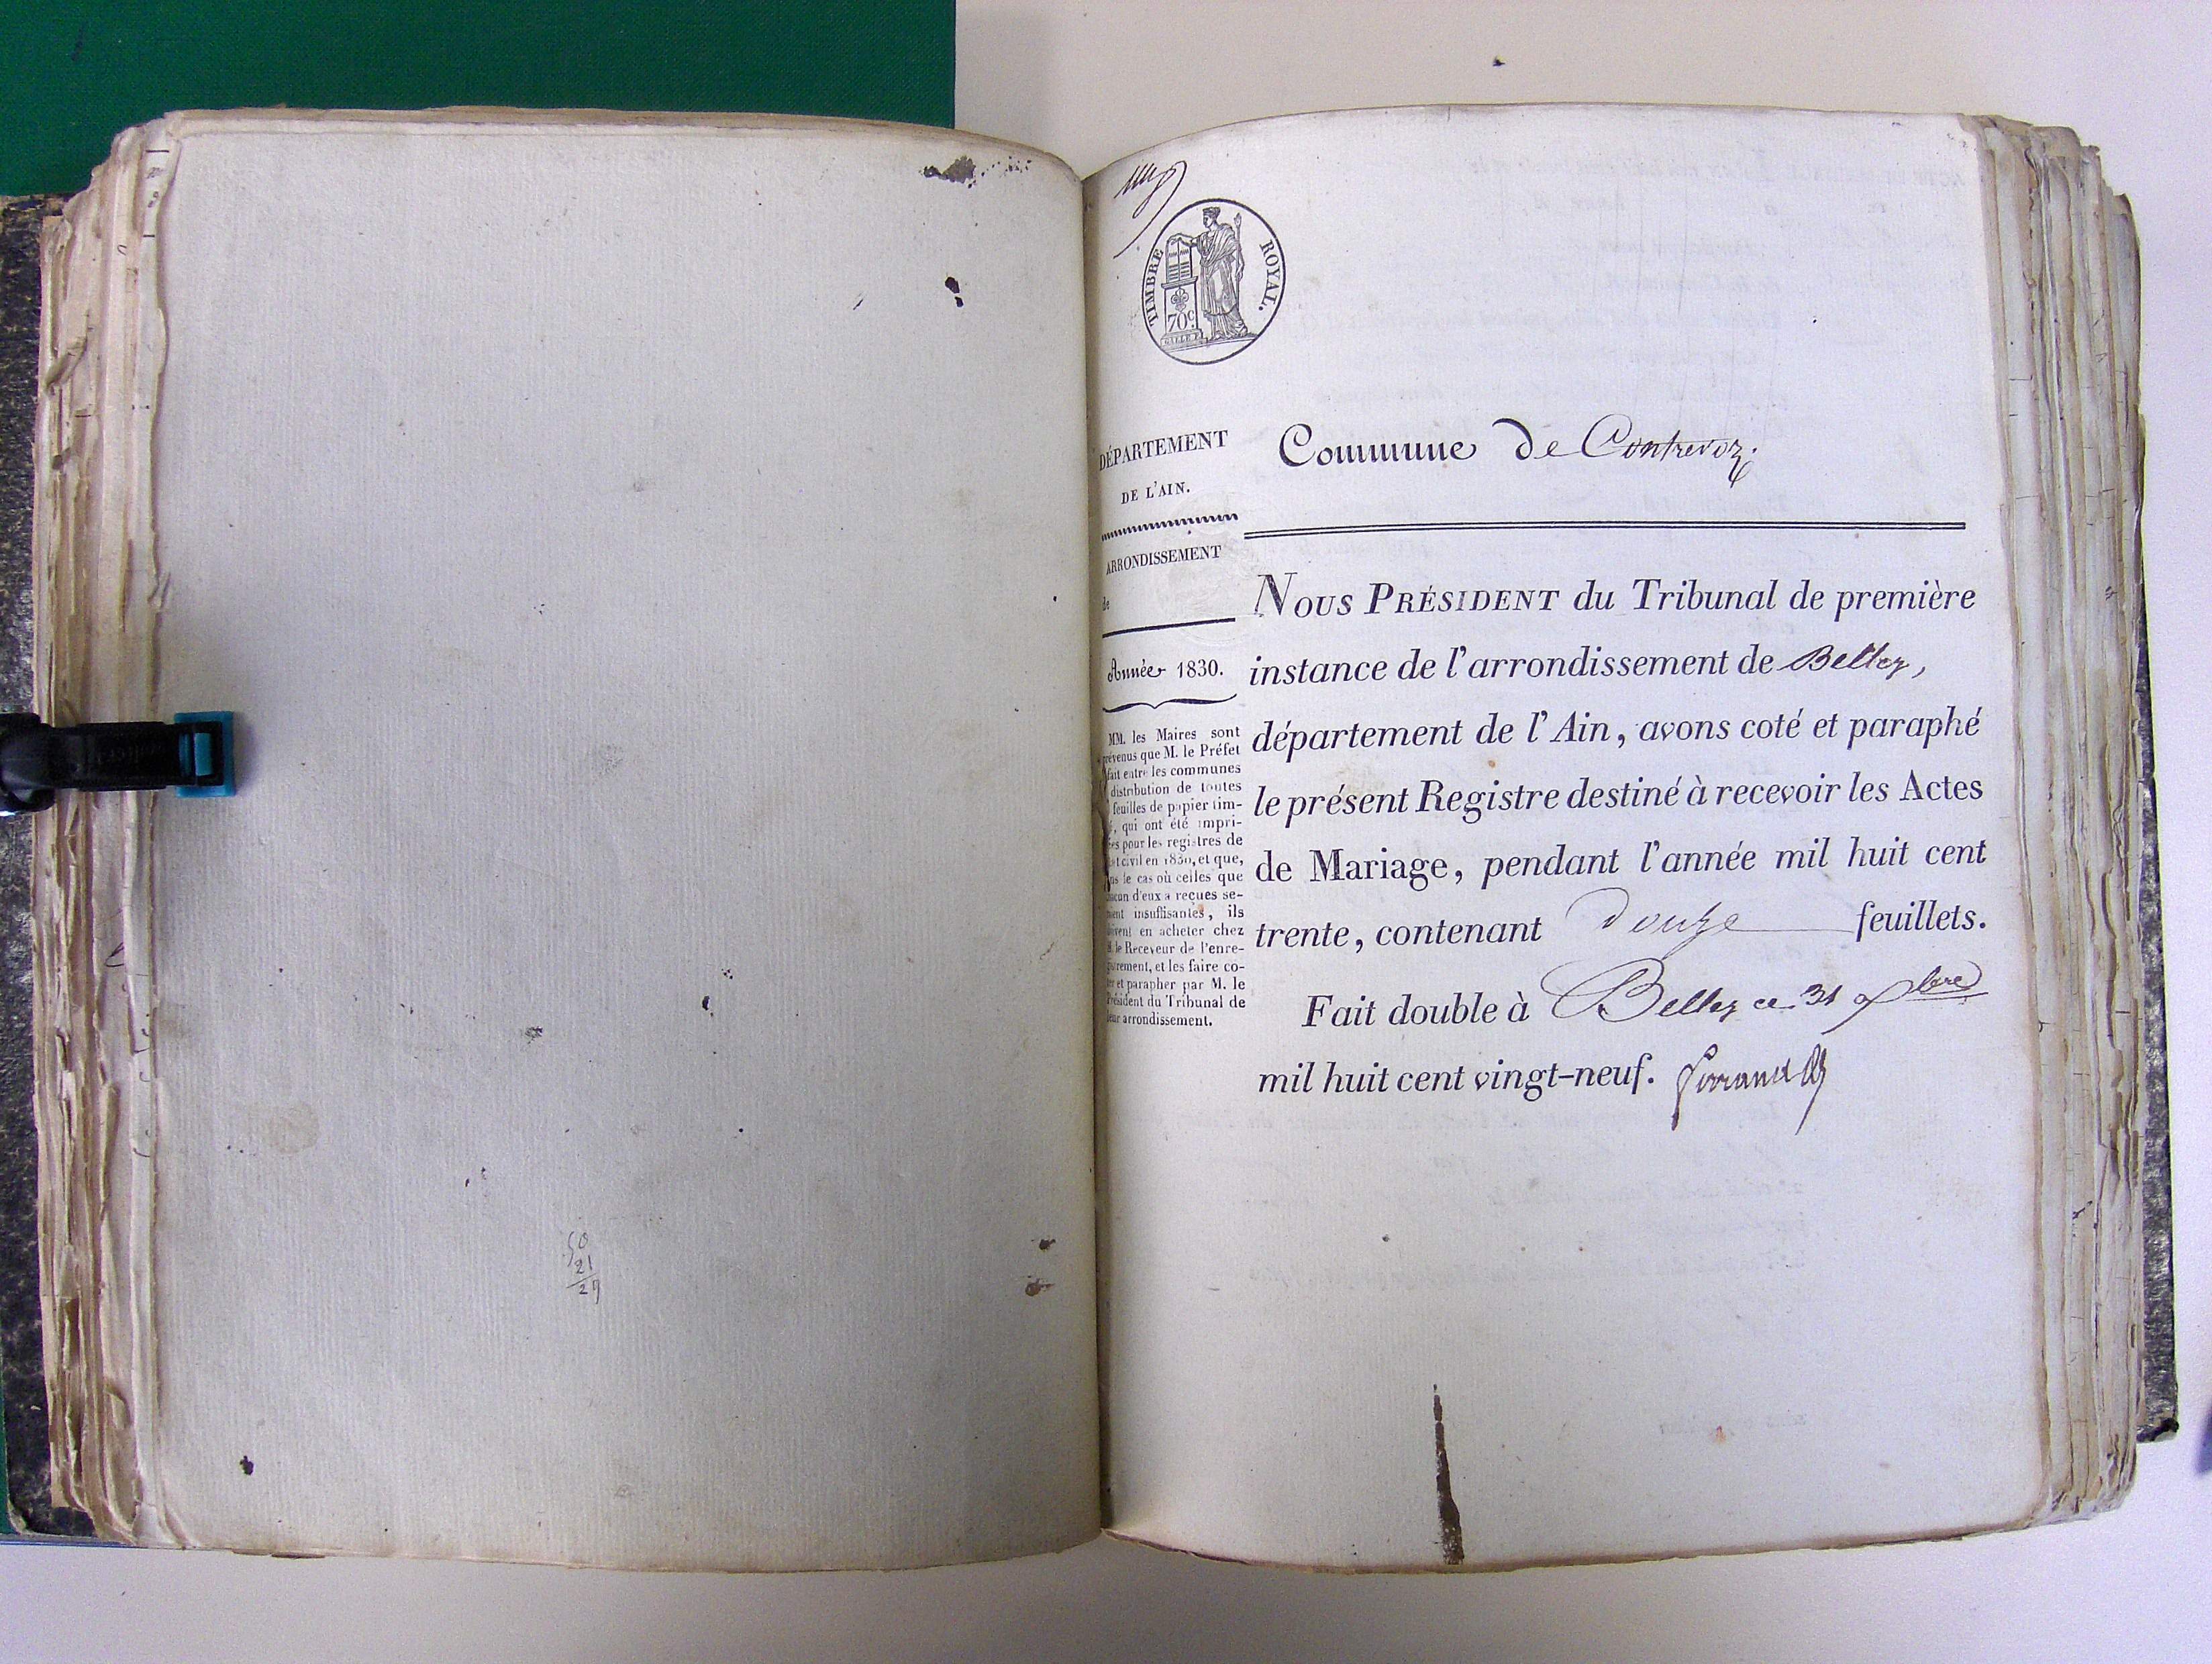 50
21
29
TIMBRE ROYAL.
70c.
DÉPARTEMENT
DE L'AIN.
ARRONDISSEMENT
de
Année 1830.
MM. les Maires sont
prévenus que M. le Préfet
fait entre les communes
distribution de toutes
feuilles de papier tim-
qui ont été impri-
pour les registres de
civil en 1830, et que,
le cas où celles que
d'eux a reçues se-
insuffisantes, ils
en acheter chez
le Receveur de l'enre-
et les faire co-
et parapher par M. le
Président du Tribunal de
leur arrondissement.
Commune de Contrevoz.
NOUS PRÉSIDENT du Tribunal de première
instance de l'arrondissement de Belley,
département de l'Ain, avons coté et paraphé
le présent Registre destiné à recevoir les Actes
de Mariage, pendant l'année mil huit cent
trente, contenant douze feuillets.
Fait double à Belley ce 31 Xbre
mil huit cent vingt-neuf.